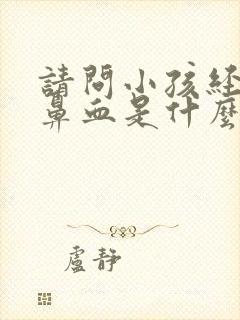 請問小孩經
鼻血是什麼
盧靜